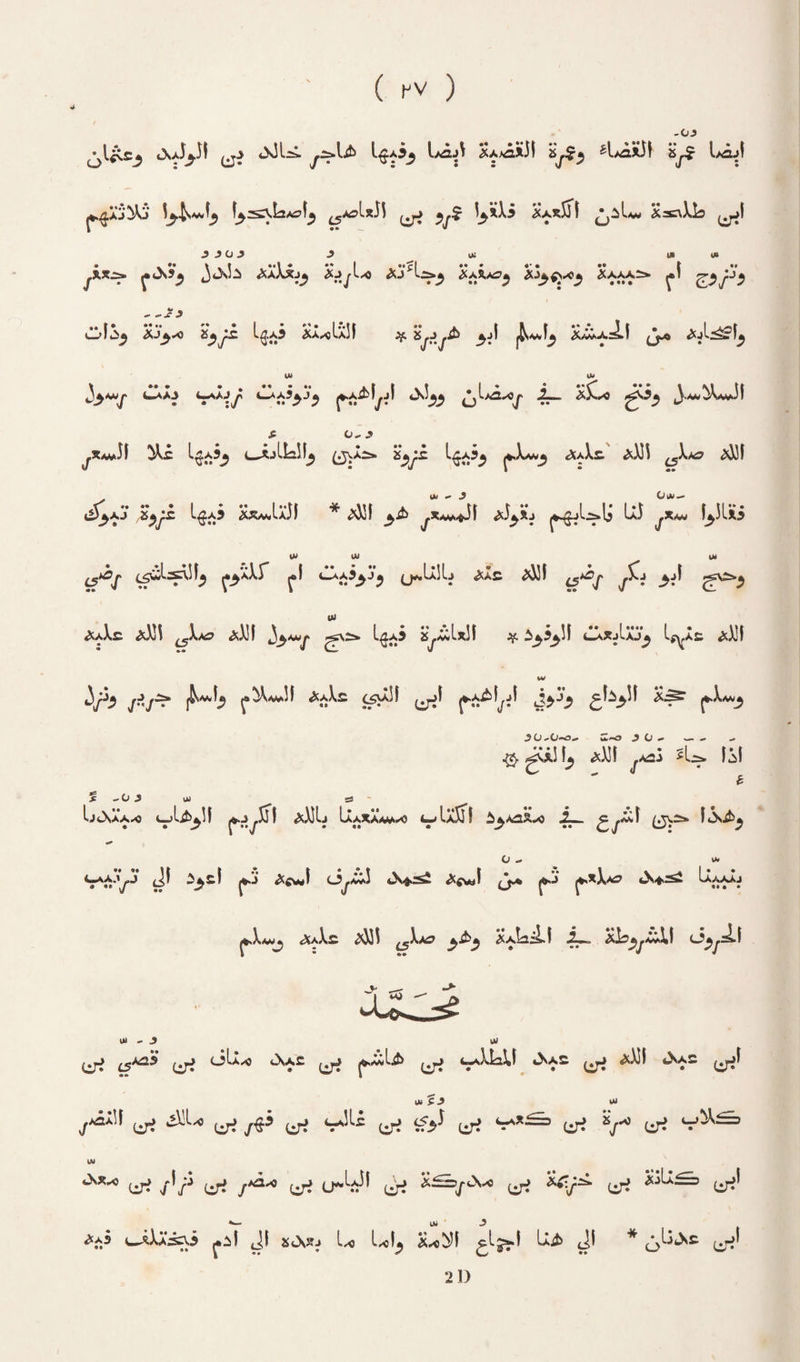 ( ٢٧ )
ايضا عمرة القضاء وعُمْرة القضية ايضا وفيها هاجر خالد بن الوليد وعثمان
ابن طلحة سادن الكعبة فلقوا عمرو بن العاصي واصطحبوا واسلموا ثلاثتهم
وتزوج ام حبيبة وميمونة وصفية وجاءته مارية وبغلته دُلْدُلُ وقدم جعفر
واصحابه من الحبشة واسلم ابو هريرة * الثامنة فيها غزوة مُوتَة وذات
السلاسل وفتح مكّة في رمضان وولد ابرهيم وتوفيت زينب بنت رسول
الله صلى الله عليه وسلم وفيها غزوة حُنَيْن والطايف وفيها غلا السعر
فقالوا سَعِّرْ لنا فاجابهم بقوله المُسَعِّر هو الله * التاسعة فيها غزوة تبوك
وحجّ ابو بكر رضى الله عنه بالناس وتوفّيت امّ كلثوم والنجاشى رضى
الله عنها وتتابعت الوفود * العاشرة فيها حجّ رسول الله صلى الله عليه
وسلم حجّة الوداع وتوفى ابرهيم ابن النبى عليه السلام واسلم جرير ونزل
اذا جاء نَصْرُ اللّٰهِ وَالْفَتْحُ
وهذا حين اشرع في مقصود الكتاب مُسْتعينا بالله الكريم الوهاب مُبْتديا
بنبينا محمد صلعم ثم من اسمه محمد لشرف اسمه ثم اعود الى ترتيب
الحروف المشروطة في الخطبة وهو صلى الله عليه وسلم
مُحَمَّد
ابن عبد الله بن عبد المطّلب بن هاشم بن عبد مناف بن قُصَيّ بن
كلاب بن مرّة بن كعب بن لُؤَيّ بن غالب بن فهر بن مالك بن النضر
ابن كنانة بن خزيمة بن مدركة بن الياس بن مضر بن نزار بن معدّ
ابن عدنان * الى هنا اجماع الامّة واما ما بعده الى ادم فيختلف فيه
2 D